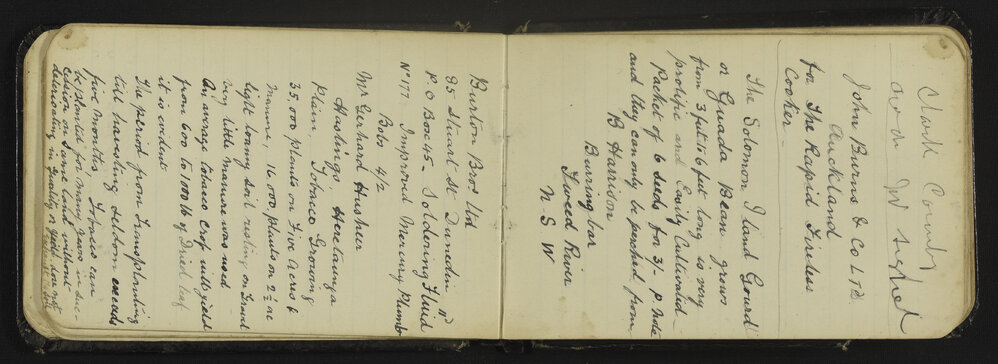 Clark County
John Burns & Co LTD
Auckland
for The Rapid Fireless
Cooker
The Solomon Iland Gourd
or Guada Bean grows
from 3 feet to 6 feet long is very
prolific and Easily Cultivated
Packet of 6 seeds for 3/- P note
and they can only be perched from
B Harrison
Burringbar
Tweed River
N S W
Burton Bros Ltd
95 Stuart St Dunedin
P.O Box 45 - Soldering Fluid
Bots 4/2
No 177 Improved Mercury Plumb
Mr Gerhard Husheer
Hastings, Heretaunga
Plain. Tobacco Growing
35,000 plants on Five acres &
manure, 16,000 plants on 2½ ac
light loamy soil resting on
very little manure was used
An average tobaco crop will yield
from 600 to 1000 lb of Dried leaf
it is evident
The period from Transplanting
till harvesting seldom exceeds
five months. Tobacco can
be planted for many years in suc-
cession on same land without
deteriorating in quality or yield